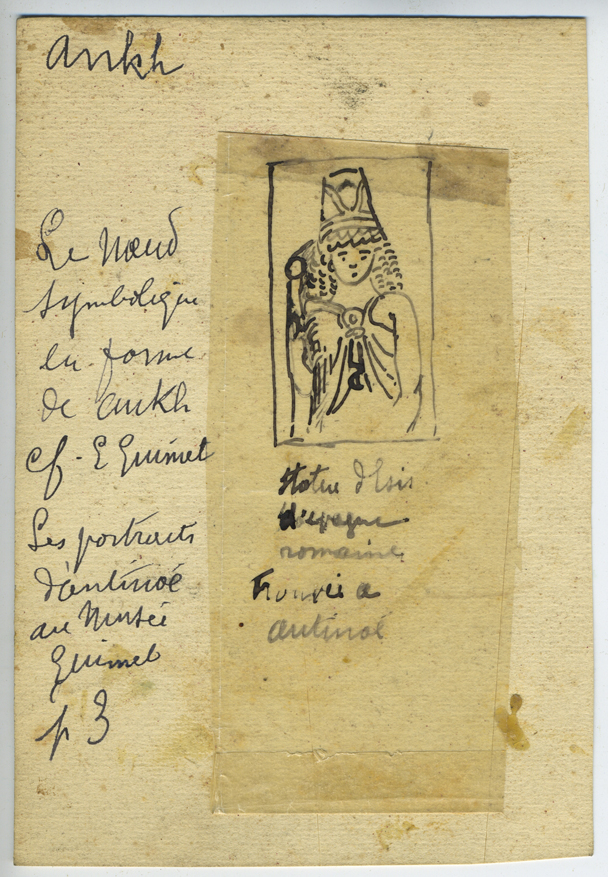 ankh
Le nœud
symbolique
en forme
de ankh
cf - E Guimet
Les portraits
d'antinoé
au Musée
Guimet
p 3
Statue d'Isis
d'epoque
romaine
Trouvée a
antinoé